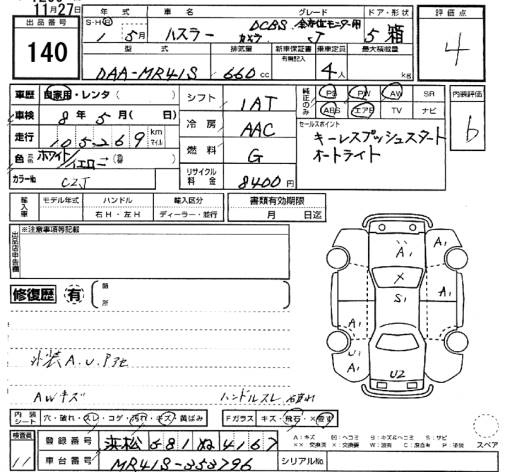 11月27日
出品番号 140
年式 車名 グレード ドア・形状 評価点
S・H・R 1年 5月 ハスラー DCBS 全方位モニター用カメラ J 5 箱 4
型式 排気量 新車保証書 乗車定員 最大積載量
有無記入
DAA-MR41S 660cc 4人 kg
車歴 自家用・レンタ( ) シフト 1AT 純正のみ PS PW AW SR 内装評価
車検 8年5月( 日) ABS エアB TV ナビ b
冷房 AAC
走行 105269 km マイル セールスポイント
キーレスプッシュスタート
オートライト
色 ホワイト/イエロー→( ) 燃料 G
カラーNo C2J リサイクル料金 8400円
輸入車 モデル年式 ハンドル 輸入区分 書類有効期限
右H・左H ディーラー・並行 月 日迄
出品店申告欄 ※注意事項等記載
修復歴 有 箇所
A1 A1
X A1
S1
A1 A1
A1 U1 A1
U2
外装A.U.P他
AWキズ ハンドルスレ
内装シート 穴・破れ・スレ・コゲ・汚れ・キズ・黄ばみ Fガラス キズ・飛石・×
検査員 11 登録番号 浜松 581 ぬ 4167
車台番号 MR41S-353296 シリアルNo.
A:キズ U:ヘコミ B:キズ&ヘコミ S:サビ
××:交換済 X:交換 W:波有 C:腐食有 P:塗装
スペア